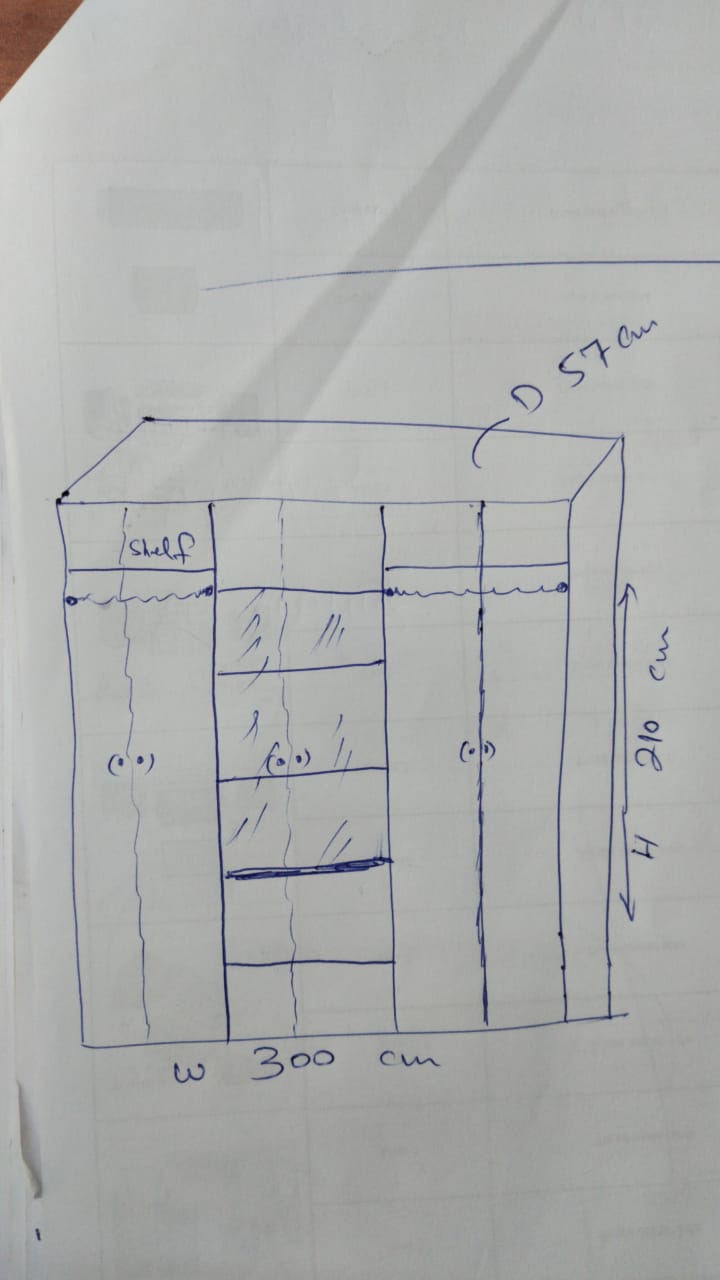 D 57 cm
shelf
H 210 cm
W 300 cm